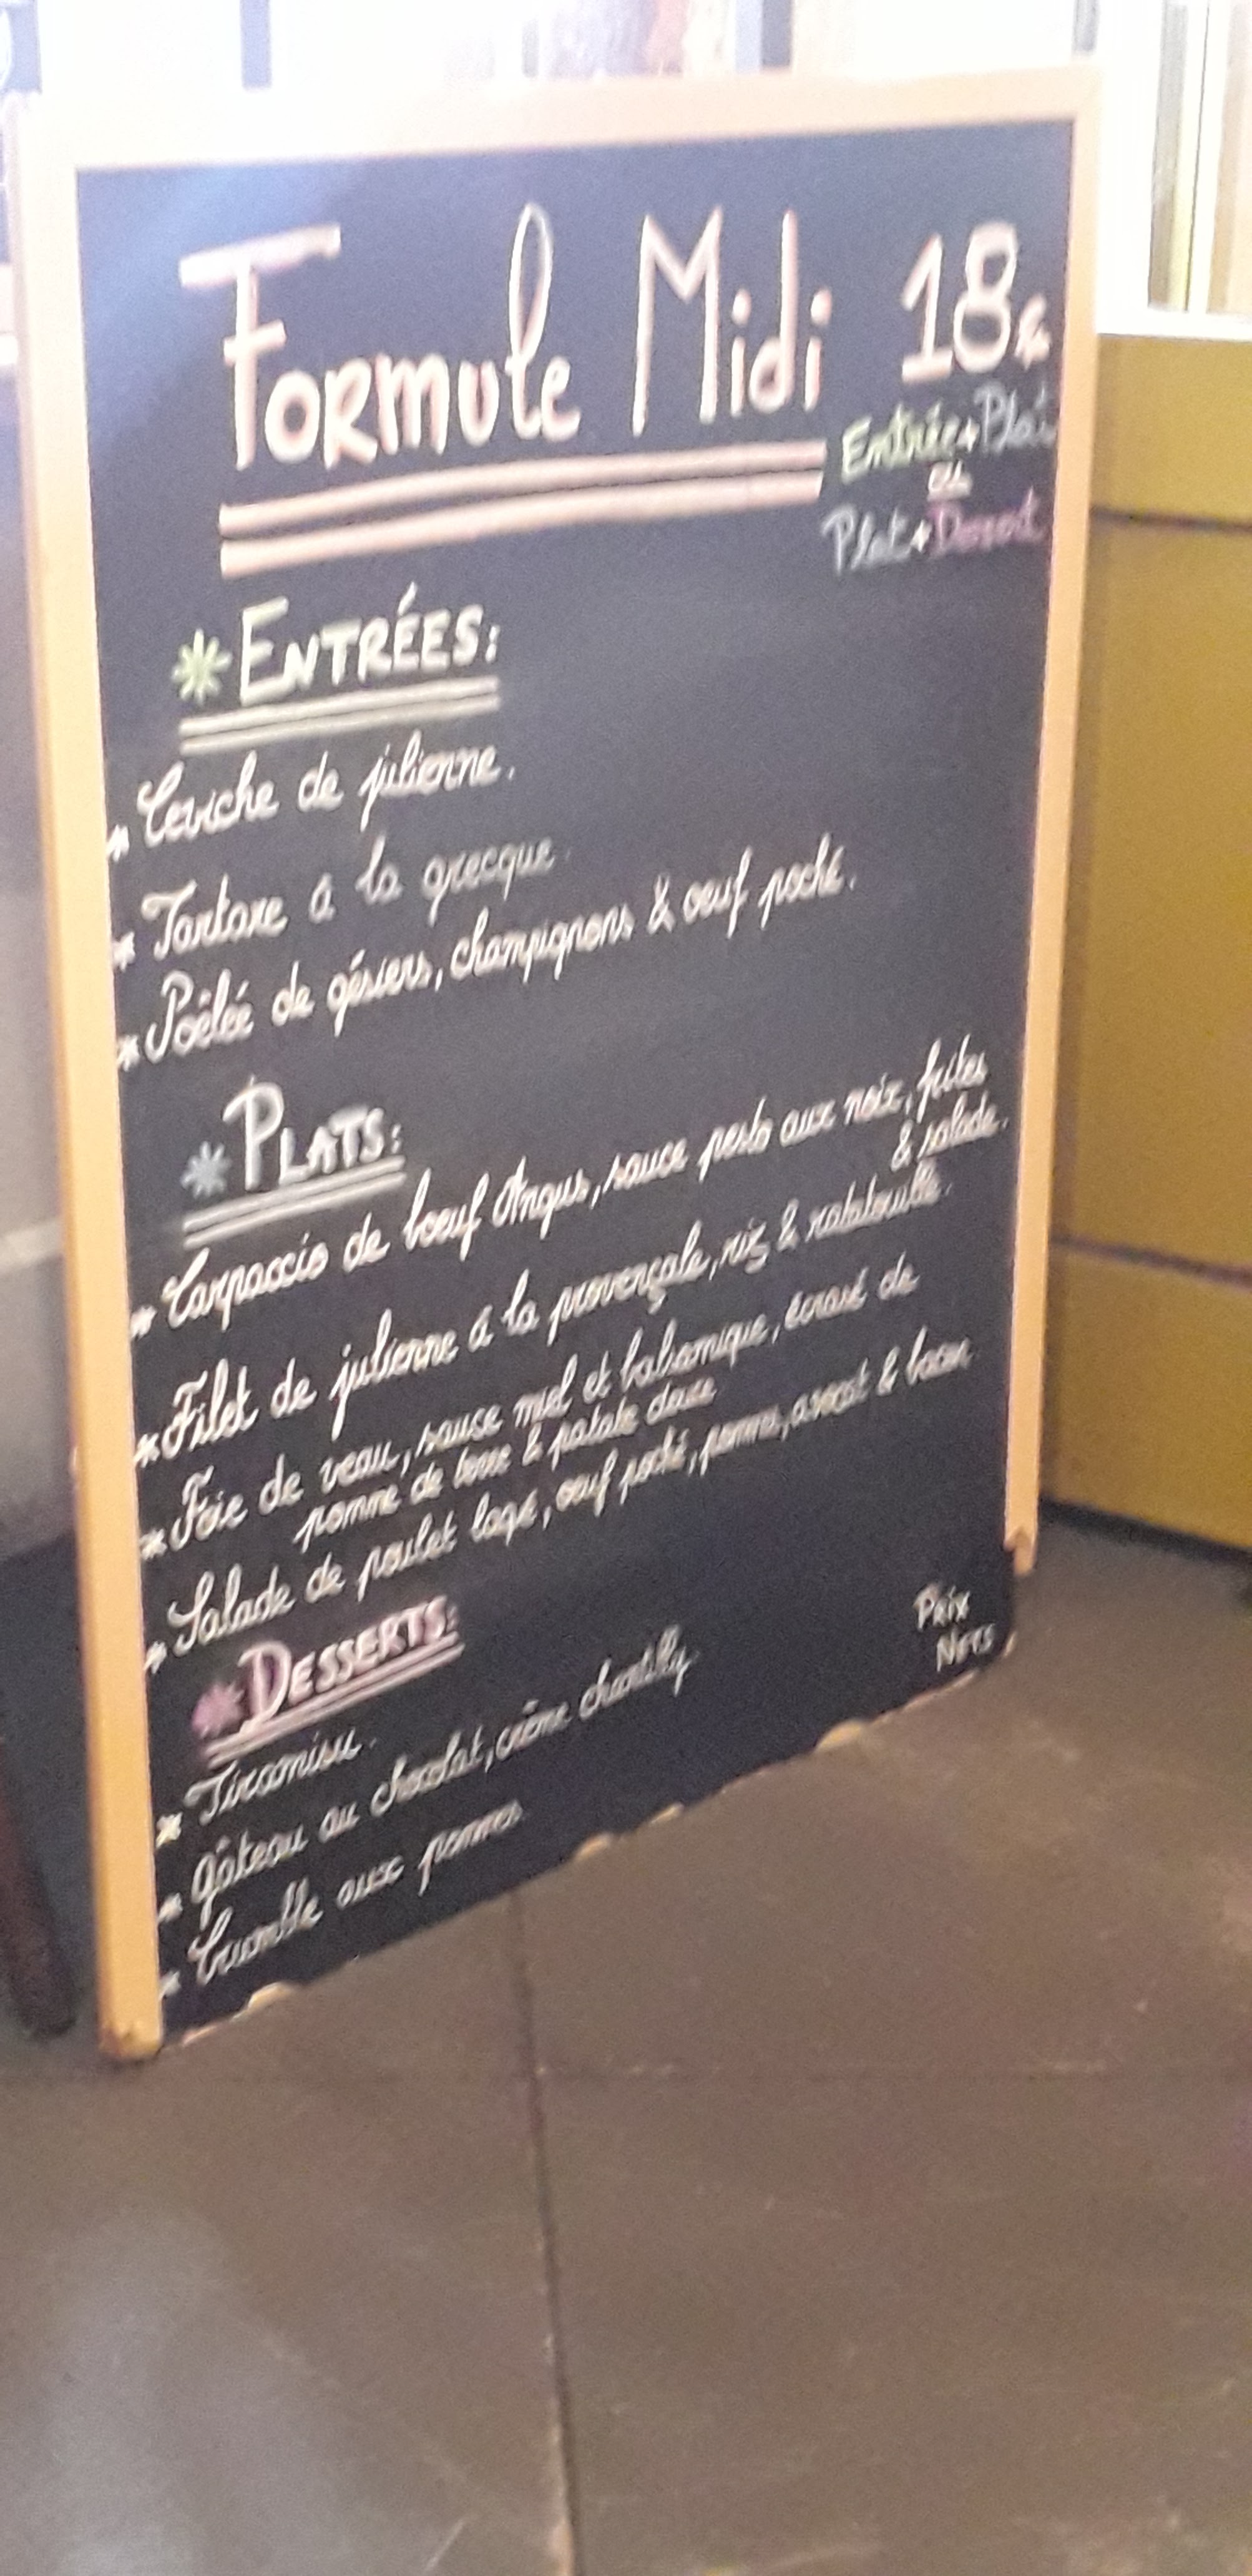 Formule Midi 18€
Entrée+Plat
ou
Plat+Dessert
* ENTRÉES:
* Ceviche de julienne.
* Tartare à la grecque.
* Poêlée de gésiers, champignons & oeuf poché.
* PLATS:
* Carpaccio de boeuf Angus, sauce pesto aux noix, frites
& salade.
* Filet de julienne à la provençale, riz & ratatouille.
* Foie de veau, sauce miel et balsamique, écrasé de
pomme de terre & patate douce
* Salade de poulet laqué, oeuf poché, pommes, avocat & bacon
* DESSERTS:
* Tiramisu.
* Gâteau au chocolat, crème chantilly.
* Crumble aux pommes.
PRIX
NETS